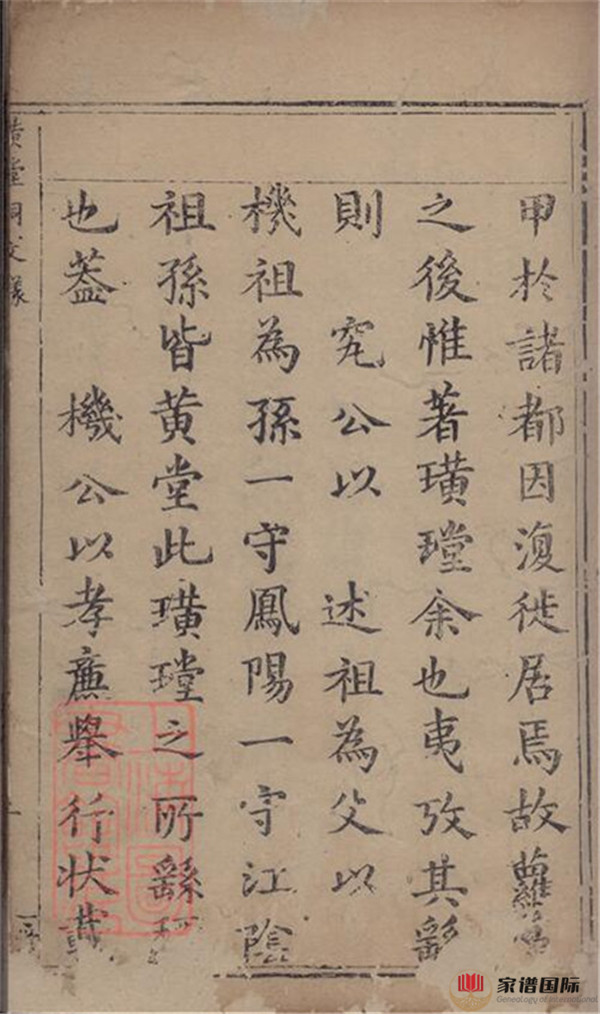 甲於諸都因復徙居焉故蘿
之後惟著璜瑝余也夷攷其
則 究公以 述祖為父以
機祖為孫一守鳳陽一守江陰
祖孫皆黄堂此璜瑝之所繇
也葢 機公以孝廉舉行状
家谱国际
Genealogy of International